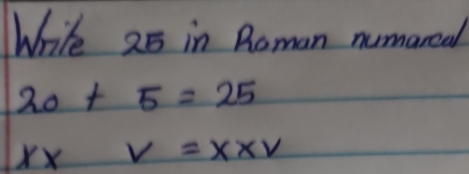 Write 25 in Roman numarcal
20 + 5 = 25
xx v = xxv